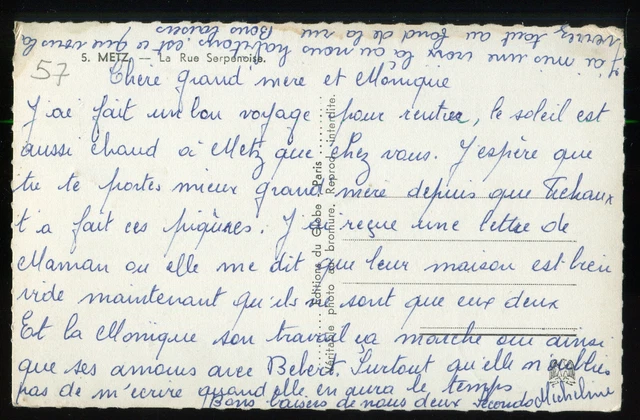 J'ai mis une croix là où nous habitons est-ce que vous la
verrez tout au fond de la rue Bons baisers
5. METZ. — La Rue Serpenoise.
57
Chère grand'mère et Monique
J'ai fait un bon voyage pour rentrer, le soleil est
aussi chaud à Metz que chez vous. J'espère que
tu te portes mieux grand'mère depuis que Tichaux
t'a fait ces piqûres. J'ai reçue une lettre de
Maman ou elle me dit que leur maison est bien
vide maintenant qu'ils ne sont que eux deux
Et la Monique son travail ça marche oui ainsi
que ses amours avec Bebert. Surtout qu'elle n'oublie
pas de m'écrire quand elle en aura le temps
Bons baisers de nous deux Micheline
Éditions du Globe, Paris
Véritable photo au bromure. Reprod. interdite.